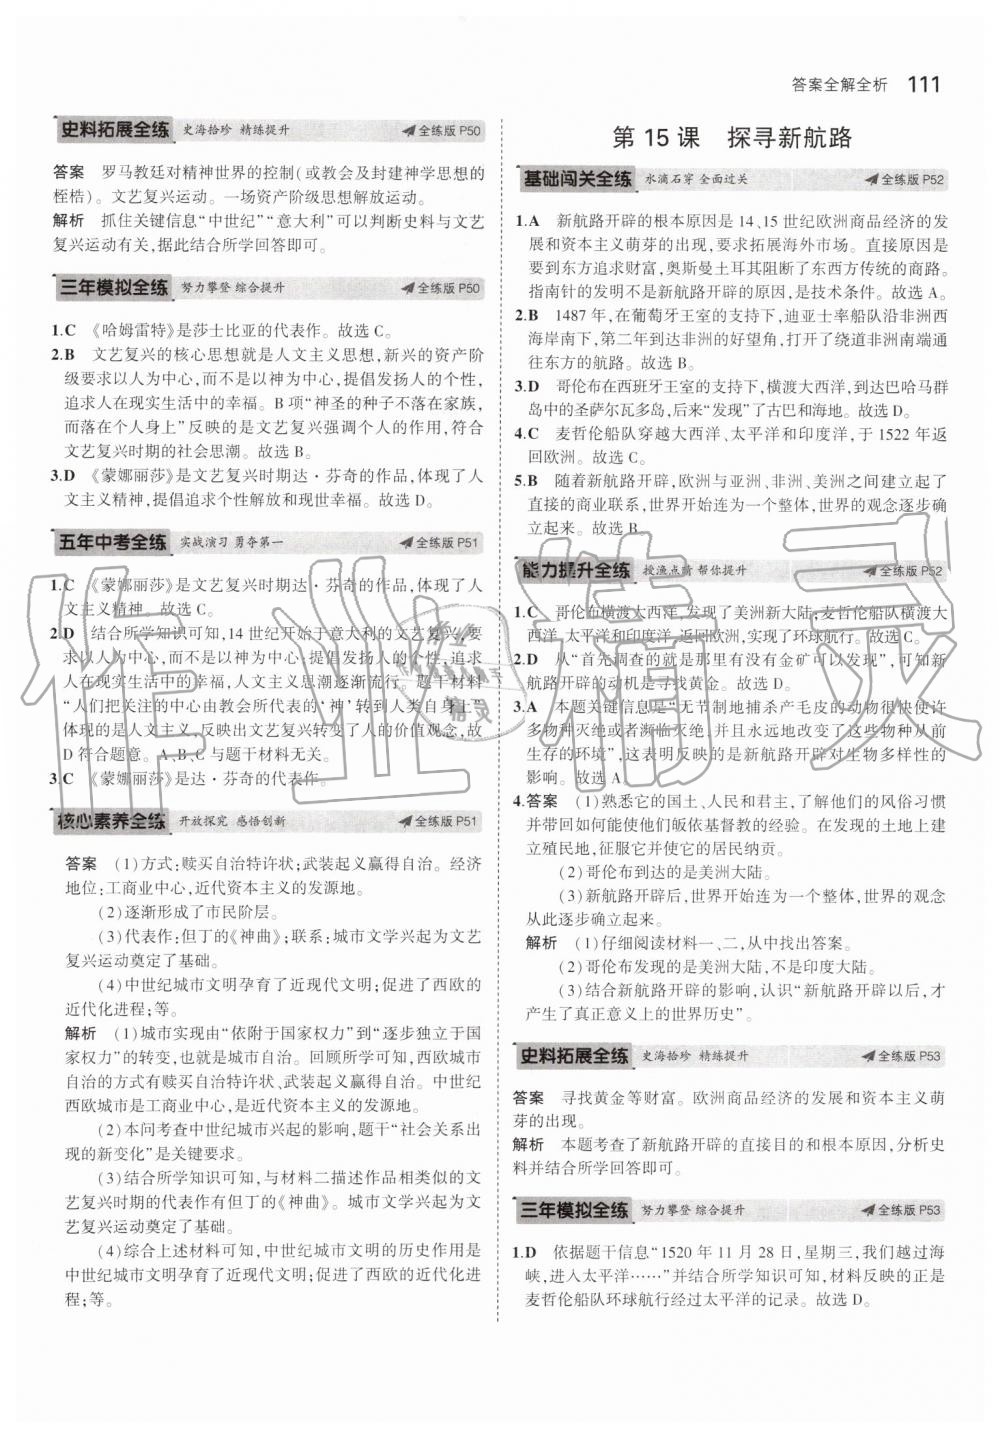 答案全解全析 111
史料拓展全练 史海拾珍 精练提升 全练版 P50
答案 罗马教廷对精神世界的控制(或教会及封建神学思想的
桎梏)。文艺复兴运动。一场资产阶级思想解放运动。
解析 抓住关键信息“中世纪”“意大利”可以判断史料与文艺
复兴运动有关,据此结合所学回答即可。
三年模拟全练 努力攀登 综合提升 全练版 P50
1.C 《哈姆雷特》是莎士比亚的代表作。故选 C。
2.B 文艺复兴的核心思想就是人文主义思想,新兴的资产阶
级要求以人为中心,而不是以神为中心,提倡发扬人的个性,
追求人在现实生活中的幸福。B 项“神圣的种子不落在家族,
而落在个人身上”反映的是文艺复兴强调个人的作用,符合
文艺复兴时期的社会思潮。故选 B。
3.D 《蒙娜丽莎》是文艺复兴时期达·芬奇的作品,体现了人
文主义精神,提倡追求个性解放和现世幸福。故选 D。
五年中考全练 实战演习 勇夺第一 全练版 P51
1.C 《蒙娜丽莎》是文艺复兴时期达·芬奇的作品,体现了人
文主义精神。故选 C。
2.D 结合所学知识可知,14 世纪开始于意大利的文艺复兴,要
求以人为中心,而不是以神为中心;提倡发扬人的个性,追求
人在现实生活中的幸福,人文主义思潮逐渐流行。题干材料
“人们把关注的中心由教会所代表的‘神’转到人类自身上”
体现的是人文主义,反映出文艺复兴转变了人的价值观念,故
D 符合题意。A、B、C 与题干材料无关。
3.C 《蒙娜丽莎》是达·芬奇的代表作。
核心素养全练 开放探究 感悟创新 全练版 P51
答案 (1)方式:赎买自治特许状;武装起义赢得自治。经济
地位:工商业中心,近代资本主义的发源地。
(2)逐渐形成了市民阶层。
(3)代表作:但丁的《神曲》;联系:城市文学兴起为文艺
复兴运动奠定了基础。
(4)中世纪城市文明孕育了近现代文明;促进了西欧的
近代化进程;等。
解析 (1)城市实现由“依附于国家权力”到“逐步独立于国
家权力”的转变,也就是城市自治。回顾所学可知,西欧城市
自治的方式有赎买自治特许状、武装起义赢得自治。中世纪
西欧城市是工商业中心,是近代资本主义的发源地。
(2)本问考查中世纪城市兴起的影响,题干“社会关系出
现的新变化”是关键要求。
(3)结合所学知识可知,与材料二描述作品相类似的文
艺复兴时期的代表作有但丁的《神曲》。城市文学兴起为文
艺复兴运动奠定了基础。
(4)综合上述材料可知,中世纪城市文明的历史作用是
中世纪城市文明孕育了近现代文明,促进了西欧的近代化进
程;等。
第 15 课 探寻新航路
基础闯关全练 水滴石穿 全面过关 全练版 P52
1.A 新航路开辟的根本原因是 14、15 世纪欧洲商品经济的发
展和资本主义萌芽的出现,要求拓展海外市场。直接原因是
要到东方追求财富,奥斯曼土耳其阻断了东西方传统的商路。
指南针的发明不是新航路开辟的原因,是技术条件。故选 A。
2.B 1487 年,在葡萄牙王室的支持下,迪亚士率船队沿非洲西
海岸南下,第二年到达非洲的好望角,打开了绕道非洲南端通
往东方的航路。故选 B。
3.D 哥伦布在西班牙王室的支持下,横渡大西洋,到达巴哈马群
岛中的圣萨尔瓦多岛,后来“发现”了古巴和海地。故选 D。
4.C 麦哲伦船队穿越大西洋、太平洋和印度洋,于 1522 年返
回欧洲。故选 C。
5.B 随着新航路开辟,欧洲与亚洲、非洲、美洲之间建立起了
直接的商业联系,世界开始连为一个整体,世界的观念逐步确
立起来。故选 B。
能力提升全练 授渔点睛 帮你提升 全练版 P52
1.C 哥伦布横渡大西洋,发现了美洲新大陆;麦哲伦船队横渡大
西洋、太平洋和印度洋,返回欧洲,实现了环球航行。故选 C。
2.D 从“首先调查的就是那里有没有金矿可以发现”,可知新
航路开辟的动机是寻找黄金。故选 D。
3.A 本题关键信息是“无节制地捕杀产毛皮的动物很快使许
多物种灭绝或者濒临灭绝,并永远地改变了这些物种从前
生存的环境”,这表明反映的是新航路开辟对生物多样性的
影响。故选 A。
4.答案 (1)熟悉它的国土、人民和君主,了解他们的风俗习惯
并带回如何能使他们皈依基督教的经验。在发现的土地上建
立殖民地,征服它并使它的居民纳贡。
(2)哥伦布到达的是美洲大陆。
(3)新航路开辟后,世界开始连为一个整体,世界的观念
从此逐步确立起来。
解析 (1)仔细阅读材料一、二,从中找出答案。
(2)哥伦布发现的是美洲大陆,不是印度大陆。
(3)结合新航路开辟的影响,认识“新航路开辟以后,才
产生了真正意义上的世界历史”。
史料拓展全练 史海拾珍 精练提升 全练版 P53
答案 寻找黄金等财富。欧洲商品经济的发展和资本主义萌
芽的出现。
解析 本题考查了新航路开辟的直接目的和根本原因,分析史
料并结合所学回答即可。
三年模拟全练 努力攀登 综合提升 全练版 P53
1.D 依据题干信息“1520 年 11 月 28 日,星期三,我们越过海
峡,进入太平洋……”并结合所学知识可知,材料反映的正是
麦哲伦船队环球航行经过太平洋的记录。故选 D。
作业精灵